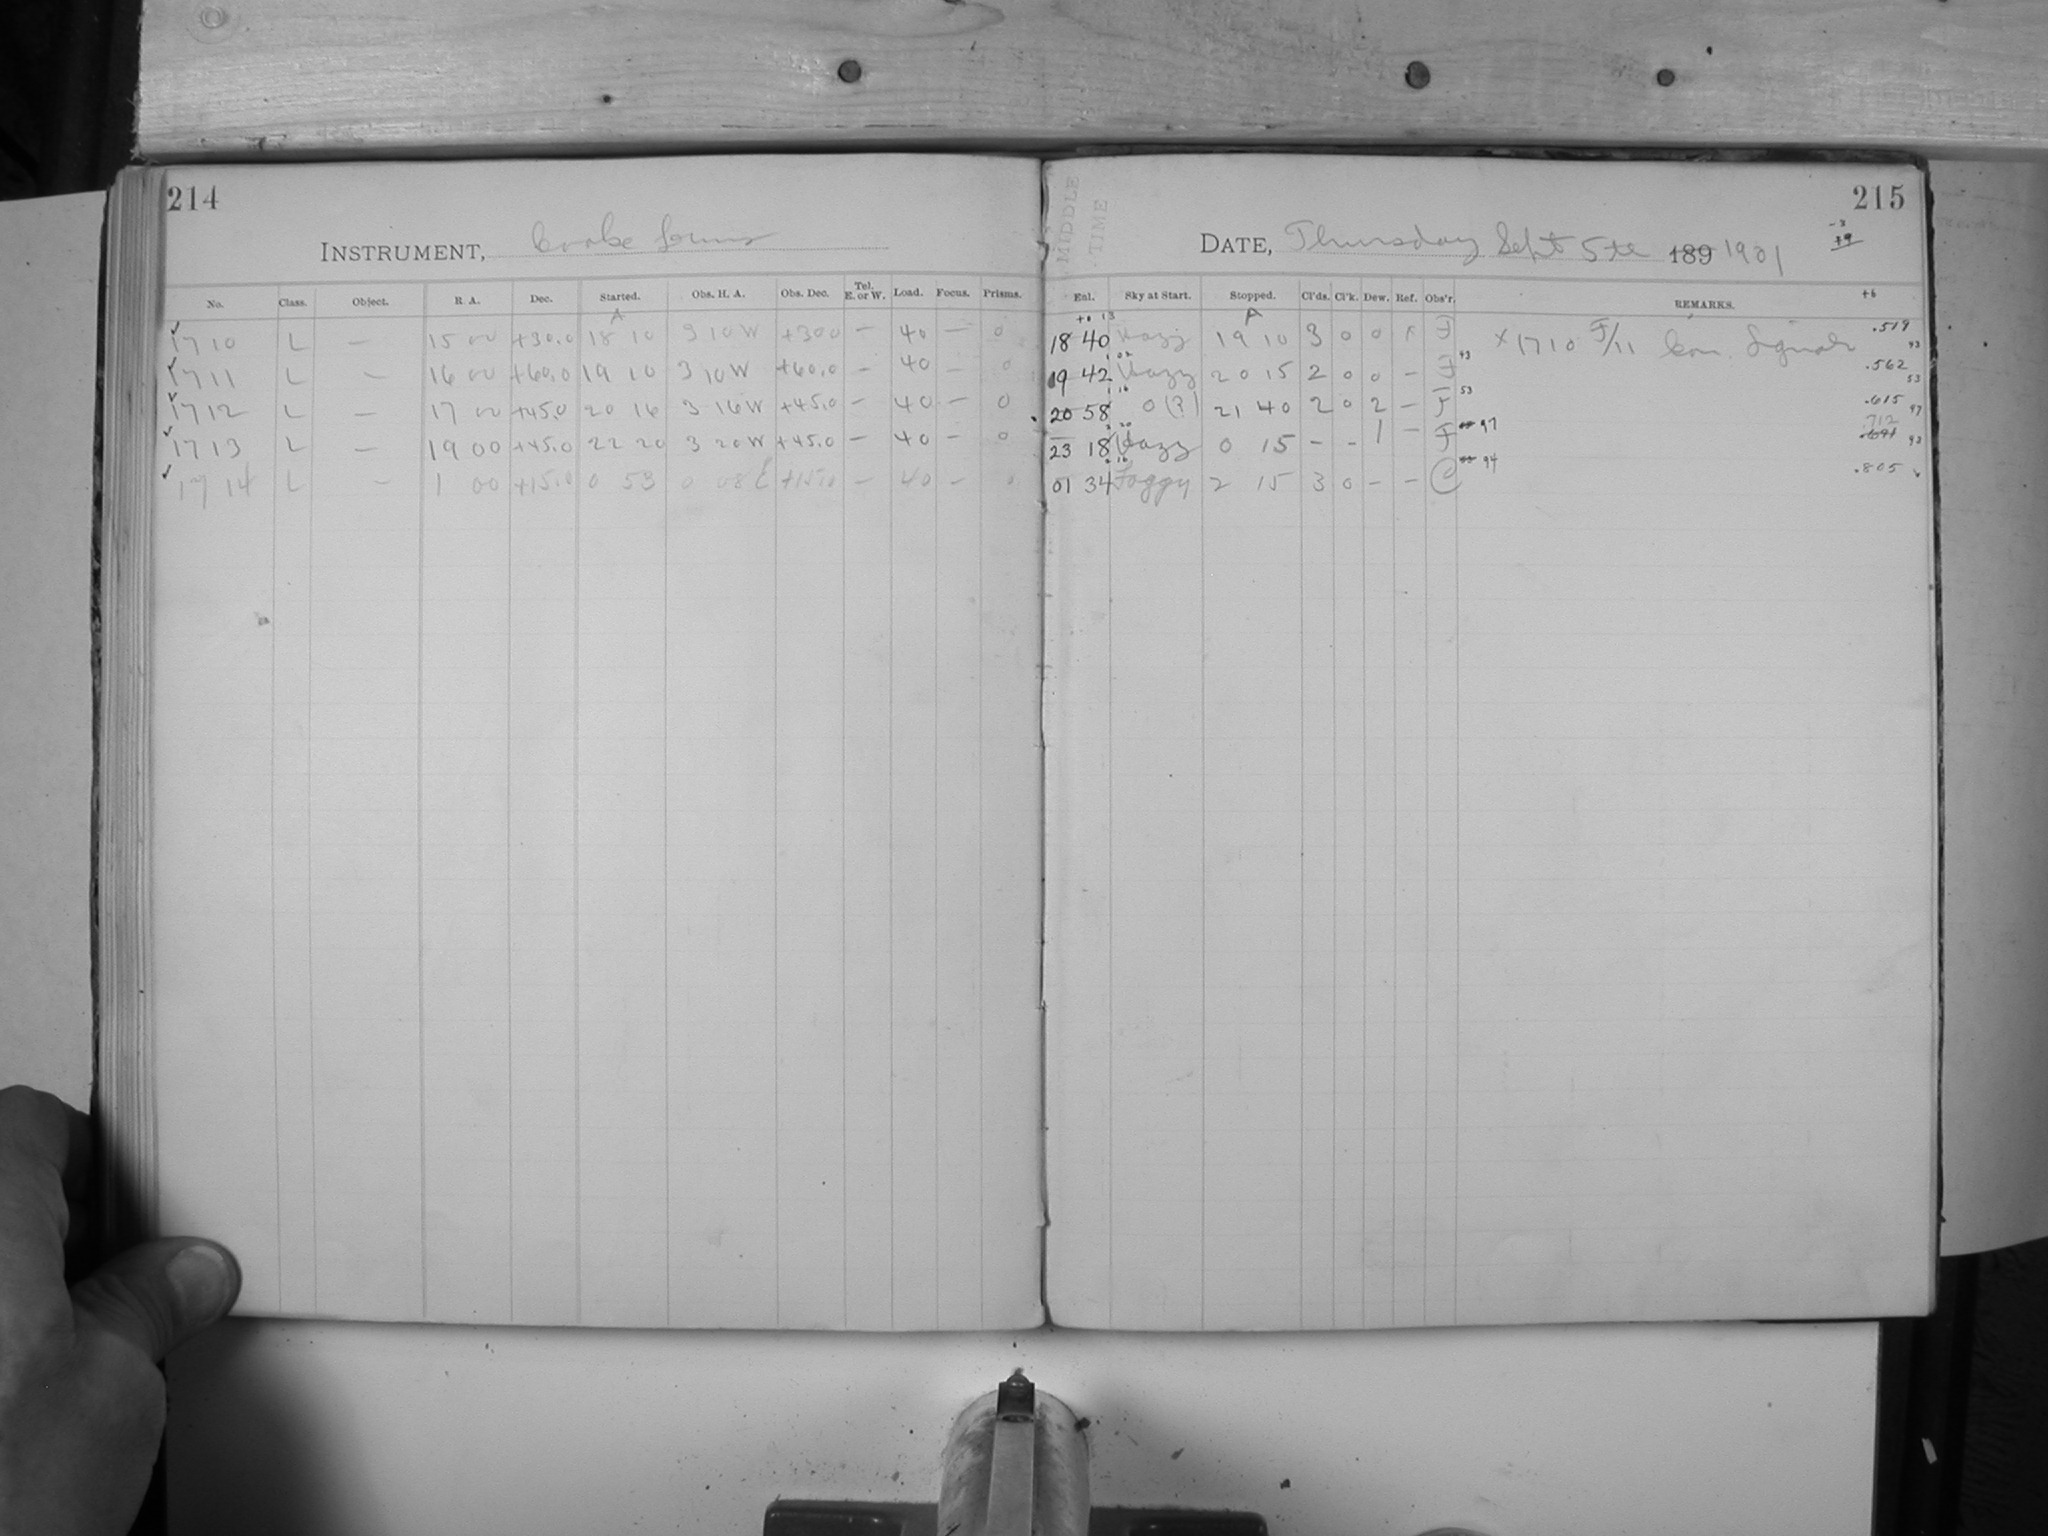 214
INSTRUMENT, Cooke Lens
No. Class. Object. R. A. Dec. Started. Obs. H. A. Obs. Dec. Tel. E. or W. Load. Focus. Prisms.
A
✓ 1710 L — 15 00 +30.0 18 10 3 10 W +300 — 40 — 0
✓ 1711 L — 16 00 +60.0 19 10 3 10 W +60.0 — 40 — 0
✓ 1712 L — 17 00 +45.0 20 16 3 16 W +45.0 — 40 — 0
✓ 1713 L — 19 00 +45.0 22 20 3 20 W +45.0 — 40 — 0
✓ 1714 L — 1 00 +15.0 0 53 0 08 E +15.0 — 40 — 0
215
MIDDLE TIME
DATE, Thursday Sept 5th 189 1901
-3
+9
+6
Enl. Sky at Start. Stopped. Cl'ds. Cl'k. Dew. Ref. Obs'r. REMARKS.
+0 13 A
18 40 Hazy 19 10 3 0 0 r F × 1710 F/11 Com. Signals .519
43 43
19 42 Hazy 20 15 2 0 0 — F .562
53 53
20 58 0 (?) 21 40 2 0 2 — F .615
97 97
.712
23 18 Hazy 0 15 — — 1 — F
94 93
01 34 Foggy 2 15 3 0 — — C .805